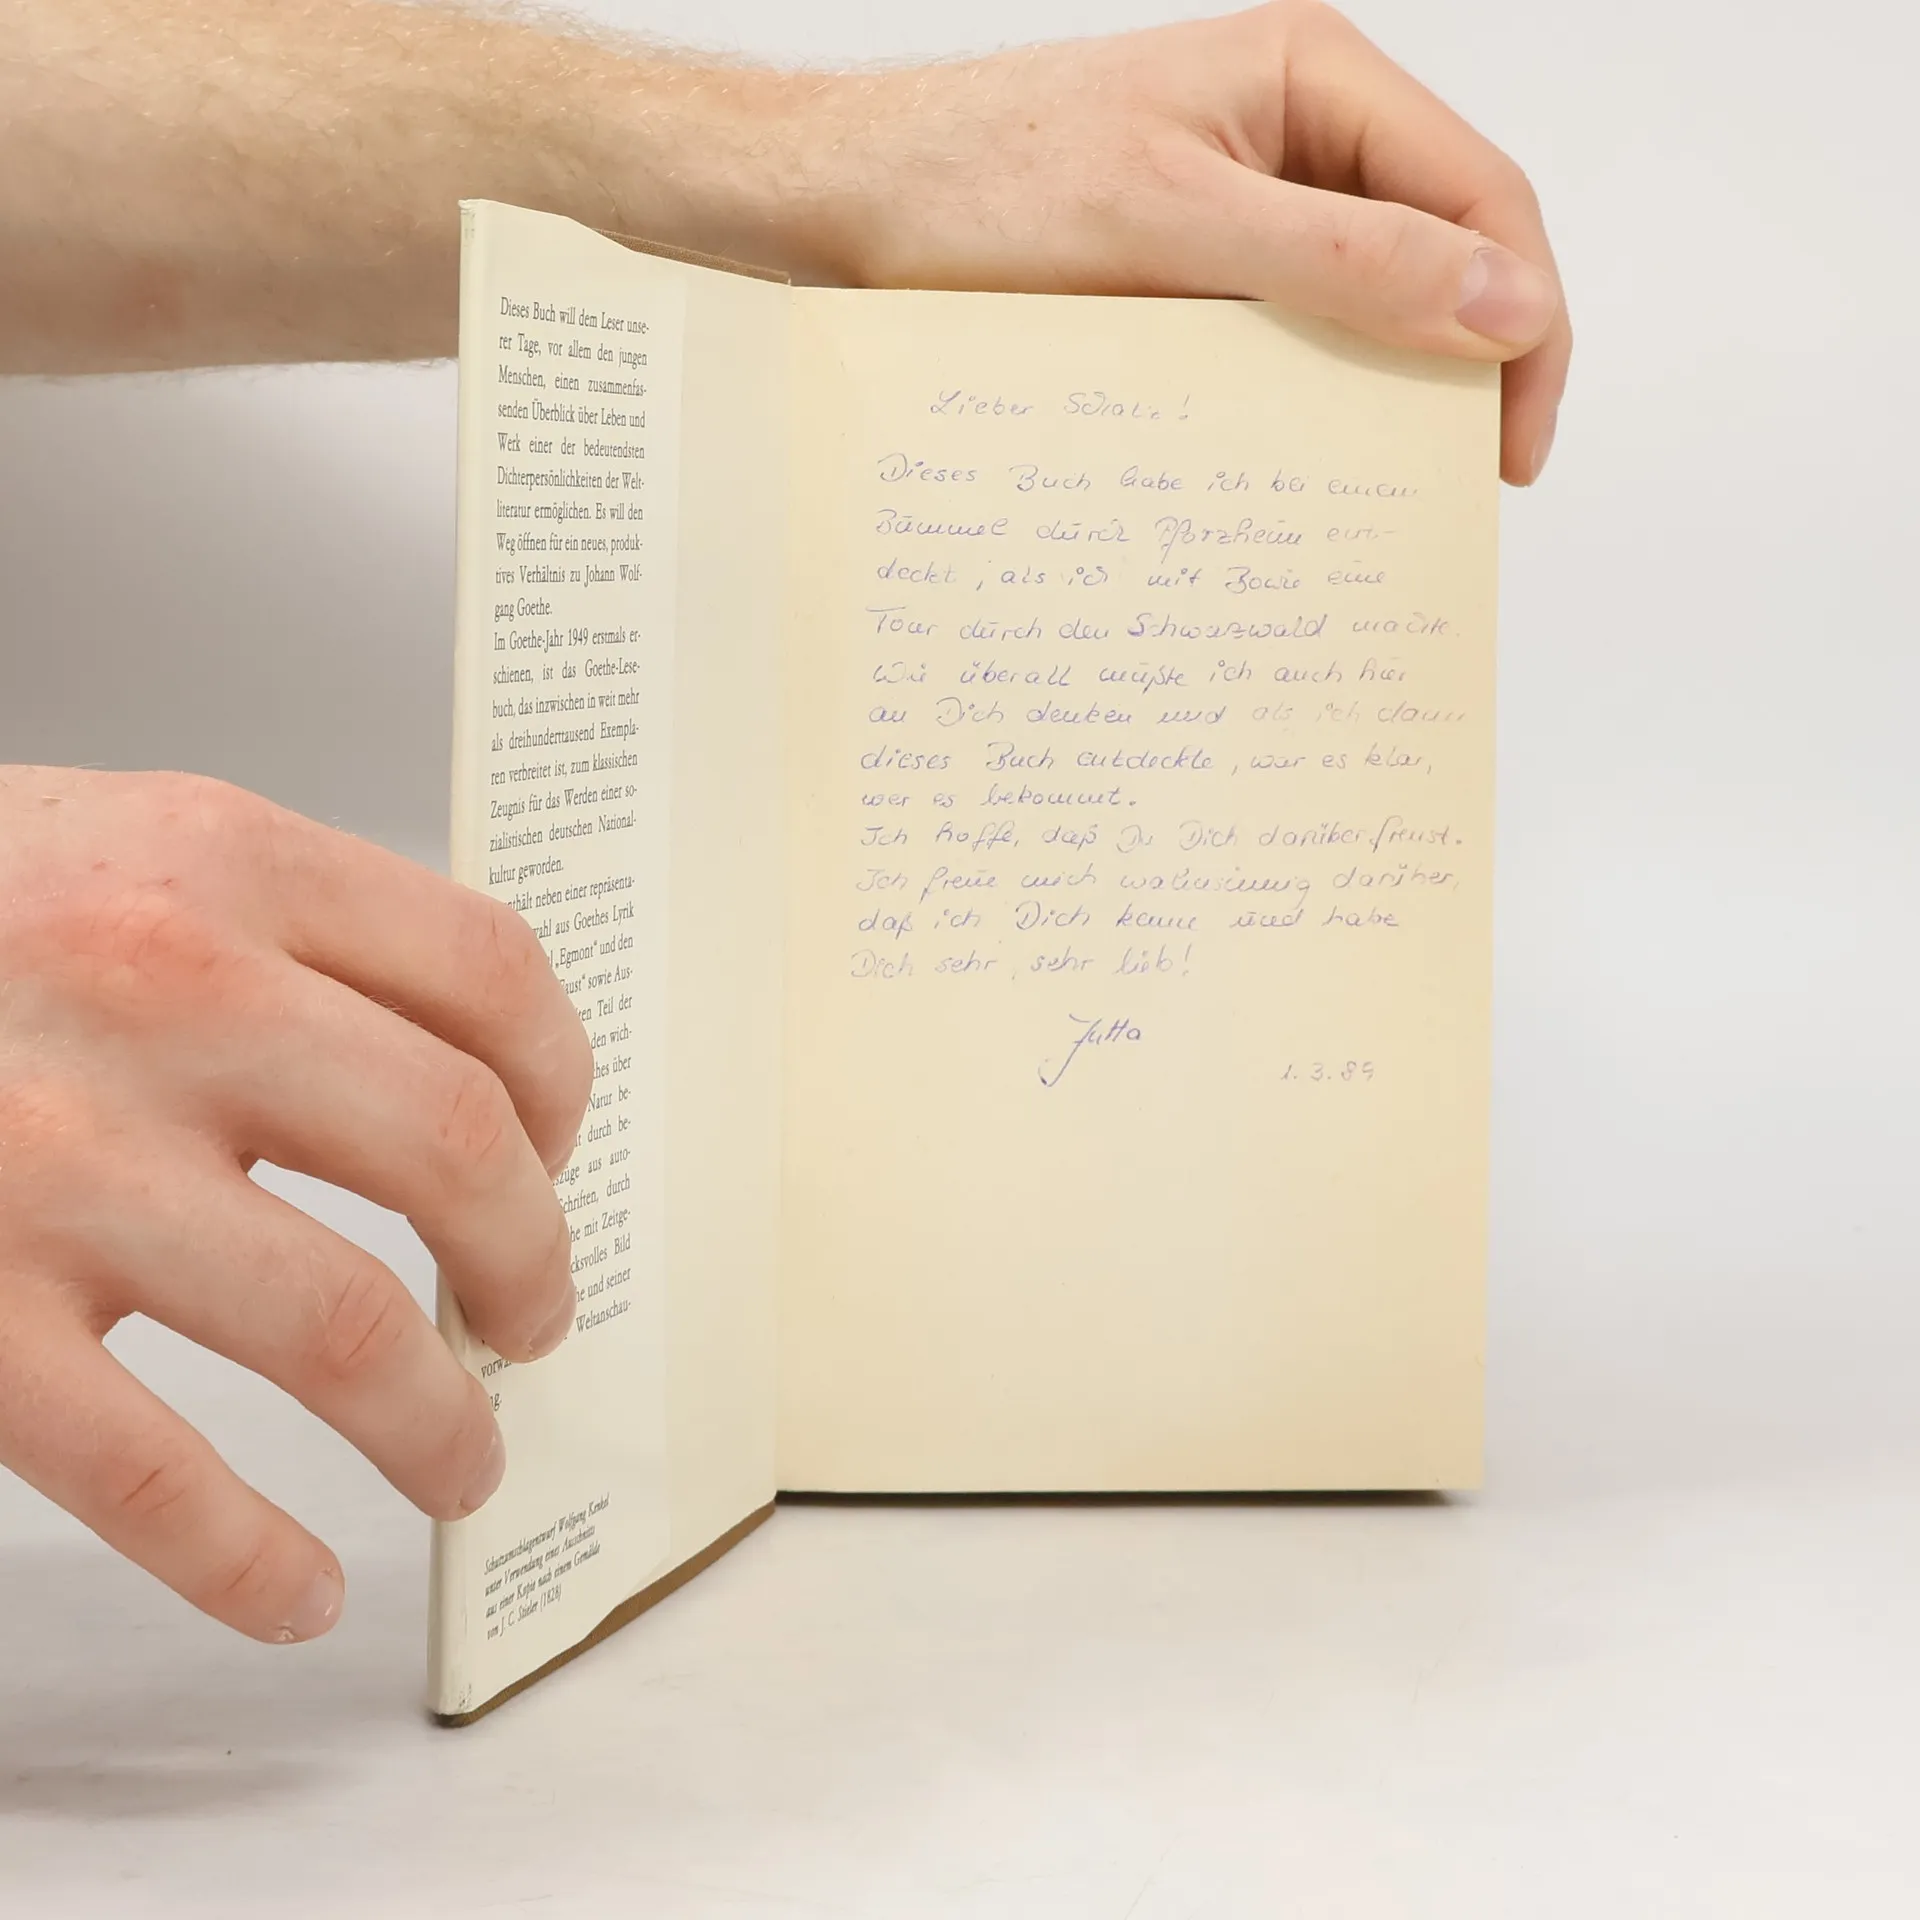 Dieses Buch will dem Leser unse-
rer Tage, vor allem den jungen
Menschen, einen zusammenfas-
senden Überblick über Leben und
Werk einer der bedeutendsten
Dichterpersönlichkeiten der Welt-
literatur ermöglichen. Es will den
Weg öffnen für ein neues, produk-
tives Verhältnis zu Johann Wolf-
gang Goethe.
Im Goethe-Jahr 1949 erstmals er-
schienen, ist das Goethe-Lese-
buch, das inzwischen in weit mehr
als dreihunderttausend Exempla-
ren verbreitet ist, zum klassischen
Zeugnis für das Werden einer so-
zialistischen deutschen National-
kultur geworden.
neben einer repräsenta-
aus Goethes Lyrik
„Egmont“ und den
sowie Aus-
Teil der
den wich-
über
Natur be-
durch be-
aus auto-
Schriften, durch
mit Zeitge-
Bild
und seiner
Weltanschau-
Schutzumschlagentwurf Wolfgang Kenkel
unter Verwendung eines Ausschnitts
aus einer Kopie nach einem Gemälde
von J. C. Stieler (1828)
Lieber !
Dieses Buch habe ich bei einem
Bummel durch Pforzheim ent-
deckt, als ich mit eine
Tour durch den Schwarzwald machte.
Wie überall mußte ich auch hier
an Dich denken und als ich dann
dieses Buch entdeckte, war es klar,
wer es bekommt.
Ich hoffe, daß Du Dich darüber freust.
Ich freue mich wahnsinnig darüber,
daß ich Dich kenne und habe
Dich sehr, sehr lieb!
Jutta
1. 3. 89